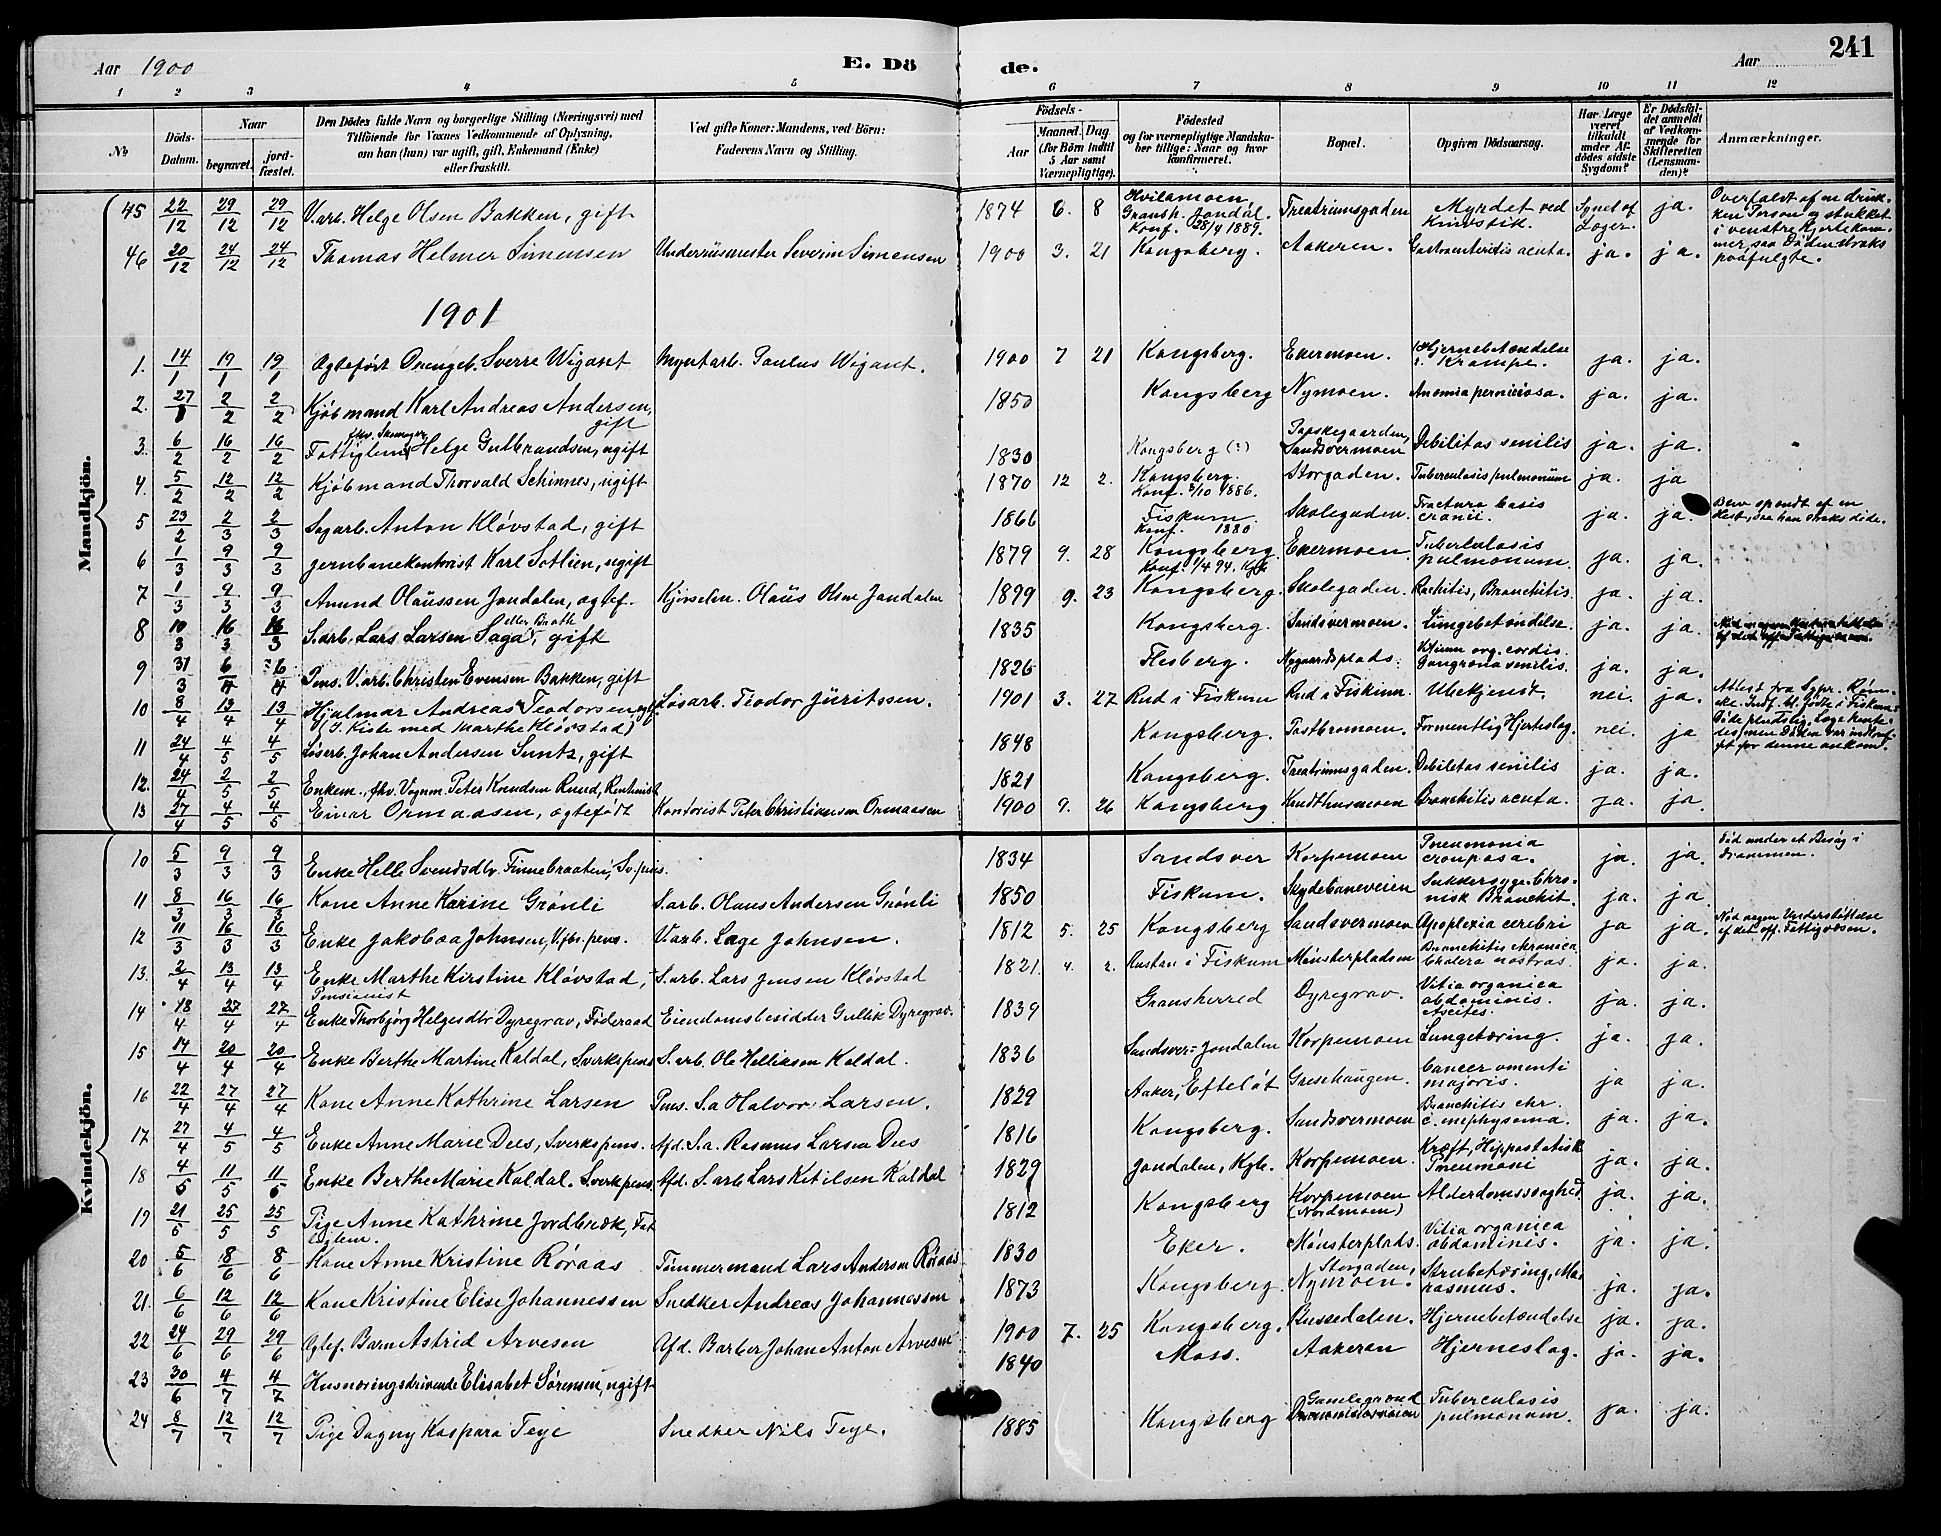 Aar 1900
E. Dö
de.
Aar
241
1 2 3 4 5 6 7 8 9 10 11 12
№
Döds-Datum.
Naar
begravet.
jord-fæstet.
Den Dödes fulde Navn og borgerlige Stilling (Næringsvei) med
Tilföiende for Voxnes Vedkommende af Oplysning,
om han (hun) var ugift, gift, Enkemand (Enke)
eller fraskilt.
Ved gifte Koner: Mandens, ved Börn:
Faderens Navn og Stilling.
Födsels-
Aar
Maaned. Dag.
(for Börn indtil
5 Aar samt
Værnepligtige).
Födested
og for værnepligtige Mandska-
ber tillige: Naar og hvor
konfirmeret.
Bopæl.
Opgiven Dödsaarsag.
Har Læge
været
tilkaldt
under Af-
dödes sidste
Sygdom?
Er Dödsfal-
det anmeldt
af Vedkom-
mende for
Skifteretten
(Lensman-
den)?
Anmærkninger.
Mandkjön.
45 22/12 29/12 29/12 V.arb. Helge Olsen Bakken, gift 1874 6. 8 Hvilamoen Gransh. Jondal. Konf. 28/4 1889. Treatriumsgaden Myrdet ved Knivstik. Synet af Læger. ja. Overfaldt af en druk-
ken Person og stukket
i venstre Hjertekam-
mer, saa Døden straks
paafulgte.
46 20/12 24/12 24/12 Thomas Helmer Simensen Severin Simensen 1900 3. 21 Kongsberg. Aakeren. Gastroenteritis acuta. ja. ja.
1901
1. 14/1 19/1 19/1 Ægtefødt Drengeb. Sverre Wigant Myntarb. Paulus Wigant. 1900 7 21 Kongsberg. Ekermoen. Hjernebetændelse Krampe. ja. ja.
2. 27/1 2/2 2/2 Kjøbmand Karl Andreas Andersen, gift 1850 Kongsberg Nymoen. Anæmia perniciosa. ja. ja.
3. 6/2 16/2 16/2 Fattiglem Helge Gulbrandsen, ugift 1830 Kongsberg (?) Sandsvermoen Debilitas senilis ja. ja.
4. 5/2 12/2 12/2 Kjøbmand Thorvald Schinnes, ugift 1870 12 2. Kongsberg. Konf. 3/10 1886. Storgaden. Tuberculosis pulmonum ja. ja
5 23/2 2/3 2/3 Sagarb. Anton Kløvstad, gift 1866 Fiskum Konf. 1880 Skolegaden. Fractura basis cranii. ja. ja. Blev spændt af en
Hest, saa han straks døde.
6 1/3 9/3 9/3 Jernbanekontorist Karl Sotlien, ugift 1879 9. 28 Kongsberg Konf. 1/4 94. Kgb. Ekermoen Tuberculosis pulmonum. ja. ja.
7 1/3 9/3 9/3 Amund Olaussen Jondalen, ægtef. Olaus Olsen Jondalen 1899 9. 23 Kongsberg. Skolegaden. Rachitis, Bronchitis. ja. ja.
8 10/3 16/3 16/3 S.arb. Lars Larsen Saga, gift 1835 Kongsberg. Sandsvermoen. Lungebetændelse. ja. ja.
9 31/3 6/4 6/4 Pens. V.arb. Christen Evensen Bakken, gift 1826 Flesberg. Nygaardsplads. Vitium org. cordis. Gangræna senilis. ja. ja.
10 8/4 13/4 13/4 Hjalmar Andreas Teodorsen (I Kiste med Marthe Kløvstad) Løsarb. Teodor Juritssen. 1901 3. 27 Rud i Fiskum Rud i Fiskum. Ubekjendt. nei. ja.
11 24/4 4/5 4/5 Løsarb. Johan Andersen Suntz, gift 1848 Kongsberg. Tostbromoen. Formentlig Hjerteslag. nei. ja Døde pludselig, Læge hente-
des, men Døden var indtruf-
fet før denne ankom.
12. 24/4 2/5 2/5 Enkem., fhv. Vognm. Peter Knudsen Ruud, Rentenist 1821 Kongsberg. Treatriumsgaden. Debilitas senilis ja. ja.
13 27/4 4/5 4/5 Einar Ormaasen, ægtefødt Kontorist Peter Christiansen Ormaasen 1900 9. 26 Kongsberg Bronchitis acuta. ja. ja
Kvindekjön.
10 5/3 9/3 9/3 Enke Helle Svendsdtr. Finnebraaten, Sv.pens. 1834 Sandsver Korpemoen Pneumonia crouposa. ja. ja. Død under et Besøg i
Drammen.
11 8/3 16/3 16/3 Kone Anne Karine Grønli S.arb. Olaus Andersen Grønli 1850 Fiskum. Skydebaneveien Sukkersyge. Chro-
nisk Bronchit. ja. ja.
12 11/3 16/3 16/3 Enke Jakobea Johnsen, V.fbr. pens. V.arb. Lage Johnsen. 1812 5. 25 Kongsberg Sandsvermoen Apoplexia cerebri ja ja. Nød ingen Understøttelse
af det off. Fattigvæsen.
13. 2/4 13/4 13/4 Enke Marthe Kirstine Kløvstad, Pensionist S.arb. Lars Jensen Kløvstad 1821. 4. 2. Rustan i Fiskum Mønsterpladsen Bronchitis chronica Cholera nostras. ja. ja.
14 18/4 27/4 27/4 Enke Thorbjørg Helgesdtr Dyregrav, Føderaad Eiendomsbesidder Gullik Dyregrav. 1839 Gransherred Dyregrav. Vitia organica abdominis. Ascites. ja. ja.
15 14/4 20/4 20/4 Enke Berthe Martine Kaldal, Sverkspens. S.arb. Ole Helliksen Kaldal. 1836 Sandsver-Jondalen Korpemoen Lungetæring. ja. ja.
16 22/4 27/4 27/4 Kone Anne Kathrine Larsen Pens. S.a Halvor Larsen. 1829 Aaker, Efteløt Græshaugen. Cancer omenti majoris. ja ja.
17 27/4 4/5 4/5 Enke Anne Marie Dees, Sverkspens. Afd. S.a. Rasmus Larsen Dees 1816 Kongsberg. Sandsvermoen Bronchitis chr. c. emphysema. ja. ja.
18 4/5 11/5 11/5 Enke Berthe Marie Kaldal. Sverkpens. Afd. S.arb Lars Ketilsen Kaldal 1829 Jondalen, Kgb. Korpemoen. Kræft, Hippostatisk Pneumoni ja. ja.
19 21/5 25/5 25/5 Pige Anne Kathrine Jordbræk, Fat-
tiglem. 1812 Kongsberg Korpemoen (Nordmoen) Alderdomssvaghed. ja. ja.
20 5/6 8/6 8/6 Kone Anne Kristine Røraas Tømmermand Lars Andersen Røraas 1830 Eker. Mønsterplads. Vitia organica abdominis. ja. ja.
21. 6/6 12/6 12/6 Kone Kristine Elise Johannessen Snedker Andreas Johannessen 1873 Kongsberg. Storgaden, Nymoen. Strubetæring, Ma-
rasmus. ja. ja.
22 24/6 29/6 29/6 Ægtef. Barn Astrid Arvesen Afd. Barber Johan Anton Arvesen 1900 7. 25 Kongsberg. Bussedalen. Hjernebetændelse ja. ja.
23 30/6 4/7 4/7 Husnæringsdrivende Elisabet Sørensen, ugift 1840 Moss. Aakeren Hjerneslag. ja. ja.
24 8/7 12/7 12/7 Pige Dagny Kaspara Teye Snedker Nils Teye. 1885 Kongsberg Gamlegrænd Tuberculosis pulmonum. ja. ja.